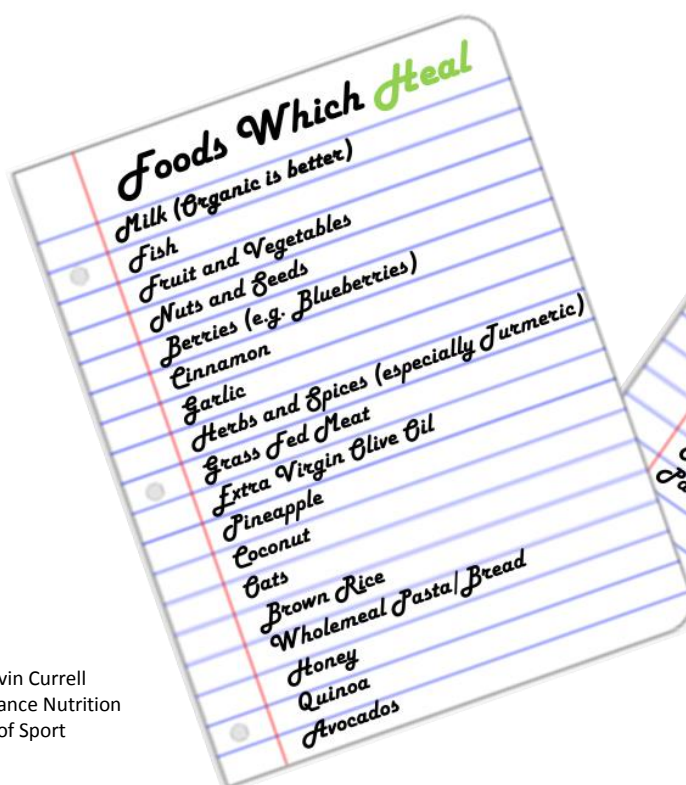 Foods Which Heal
Milk (Organic is better)
Fish
Fruit and Vegetables
Nuts and Seeds
Berries (e.g. Blueberries)
Cinnamon
Garlic
Herbs and Spices (especially Turmeric)
Grass Fed Meat
Extra Virgin Olive Oil
Pineapple
Coconut
Oats
Brown Rice
Wholemeal Pasta/Bread
Honey
Quinoa
Avocados
vin Currell
ance Nutrition
of Sport